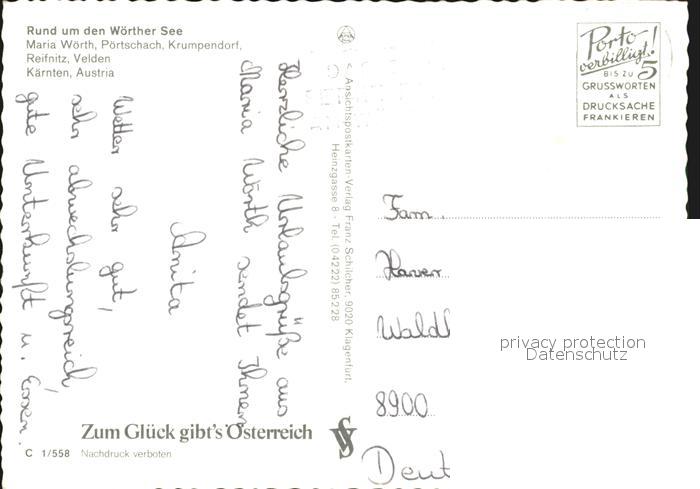 Rund um den Wörther See
Maria Wörth, Pörtschach, Krumpendorf,
Reifnitz, Velden
Kärnten, Austria
Herzliche Urlaubsgrüße aus
Maria Wörth sendet Ihnen
Anita
Wetter sehr gut,
sehr abwechslungsreich,
gute Unterkunft u. Essen.
Zum Glück gibt's Österreich
C 1/558 Nachdruck verboten
Ansichtspostkarten-Verlag Franz Schilcher, 9020 Klagenfurt,
Heinzgasse 8 · Tel. (0 42 22) 85 2 28
Porto
verbilligt!
BIS ZU 5
GRUSSWORTEN
ALS
DRUCKSACHE
FRANKIEREN
Fam.
Xaver
Waldl
8900
Deut
privacy protection
Datenschutz